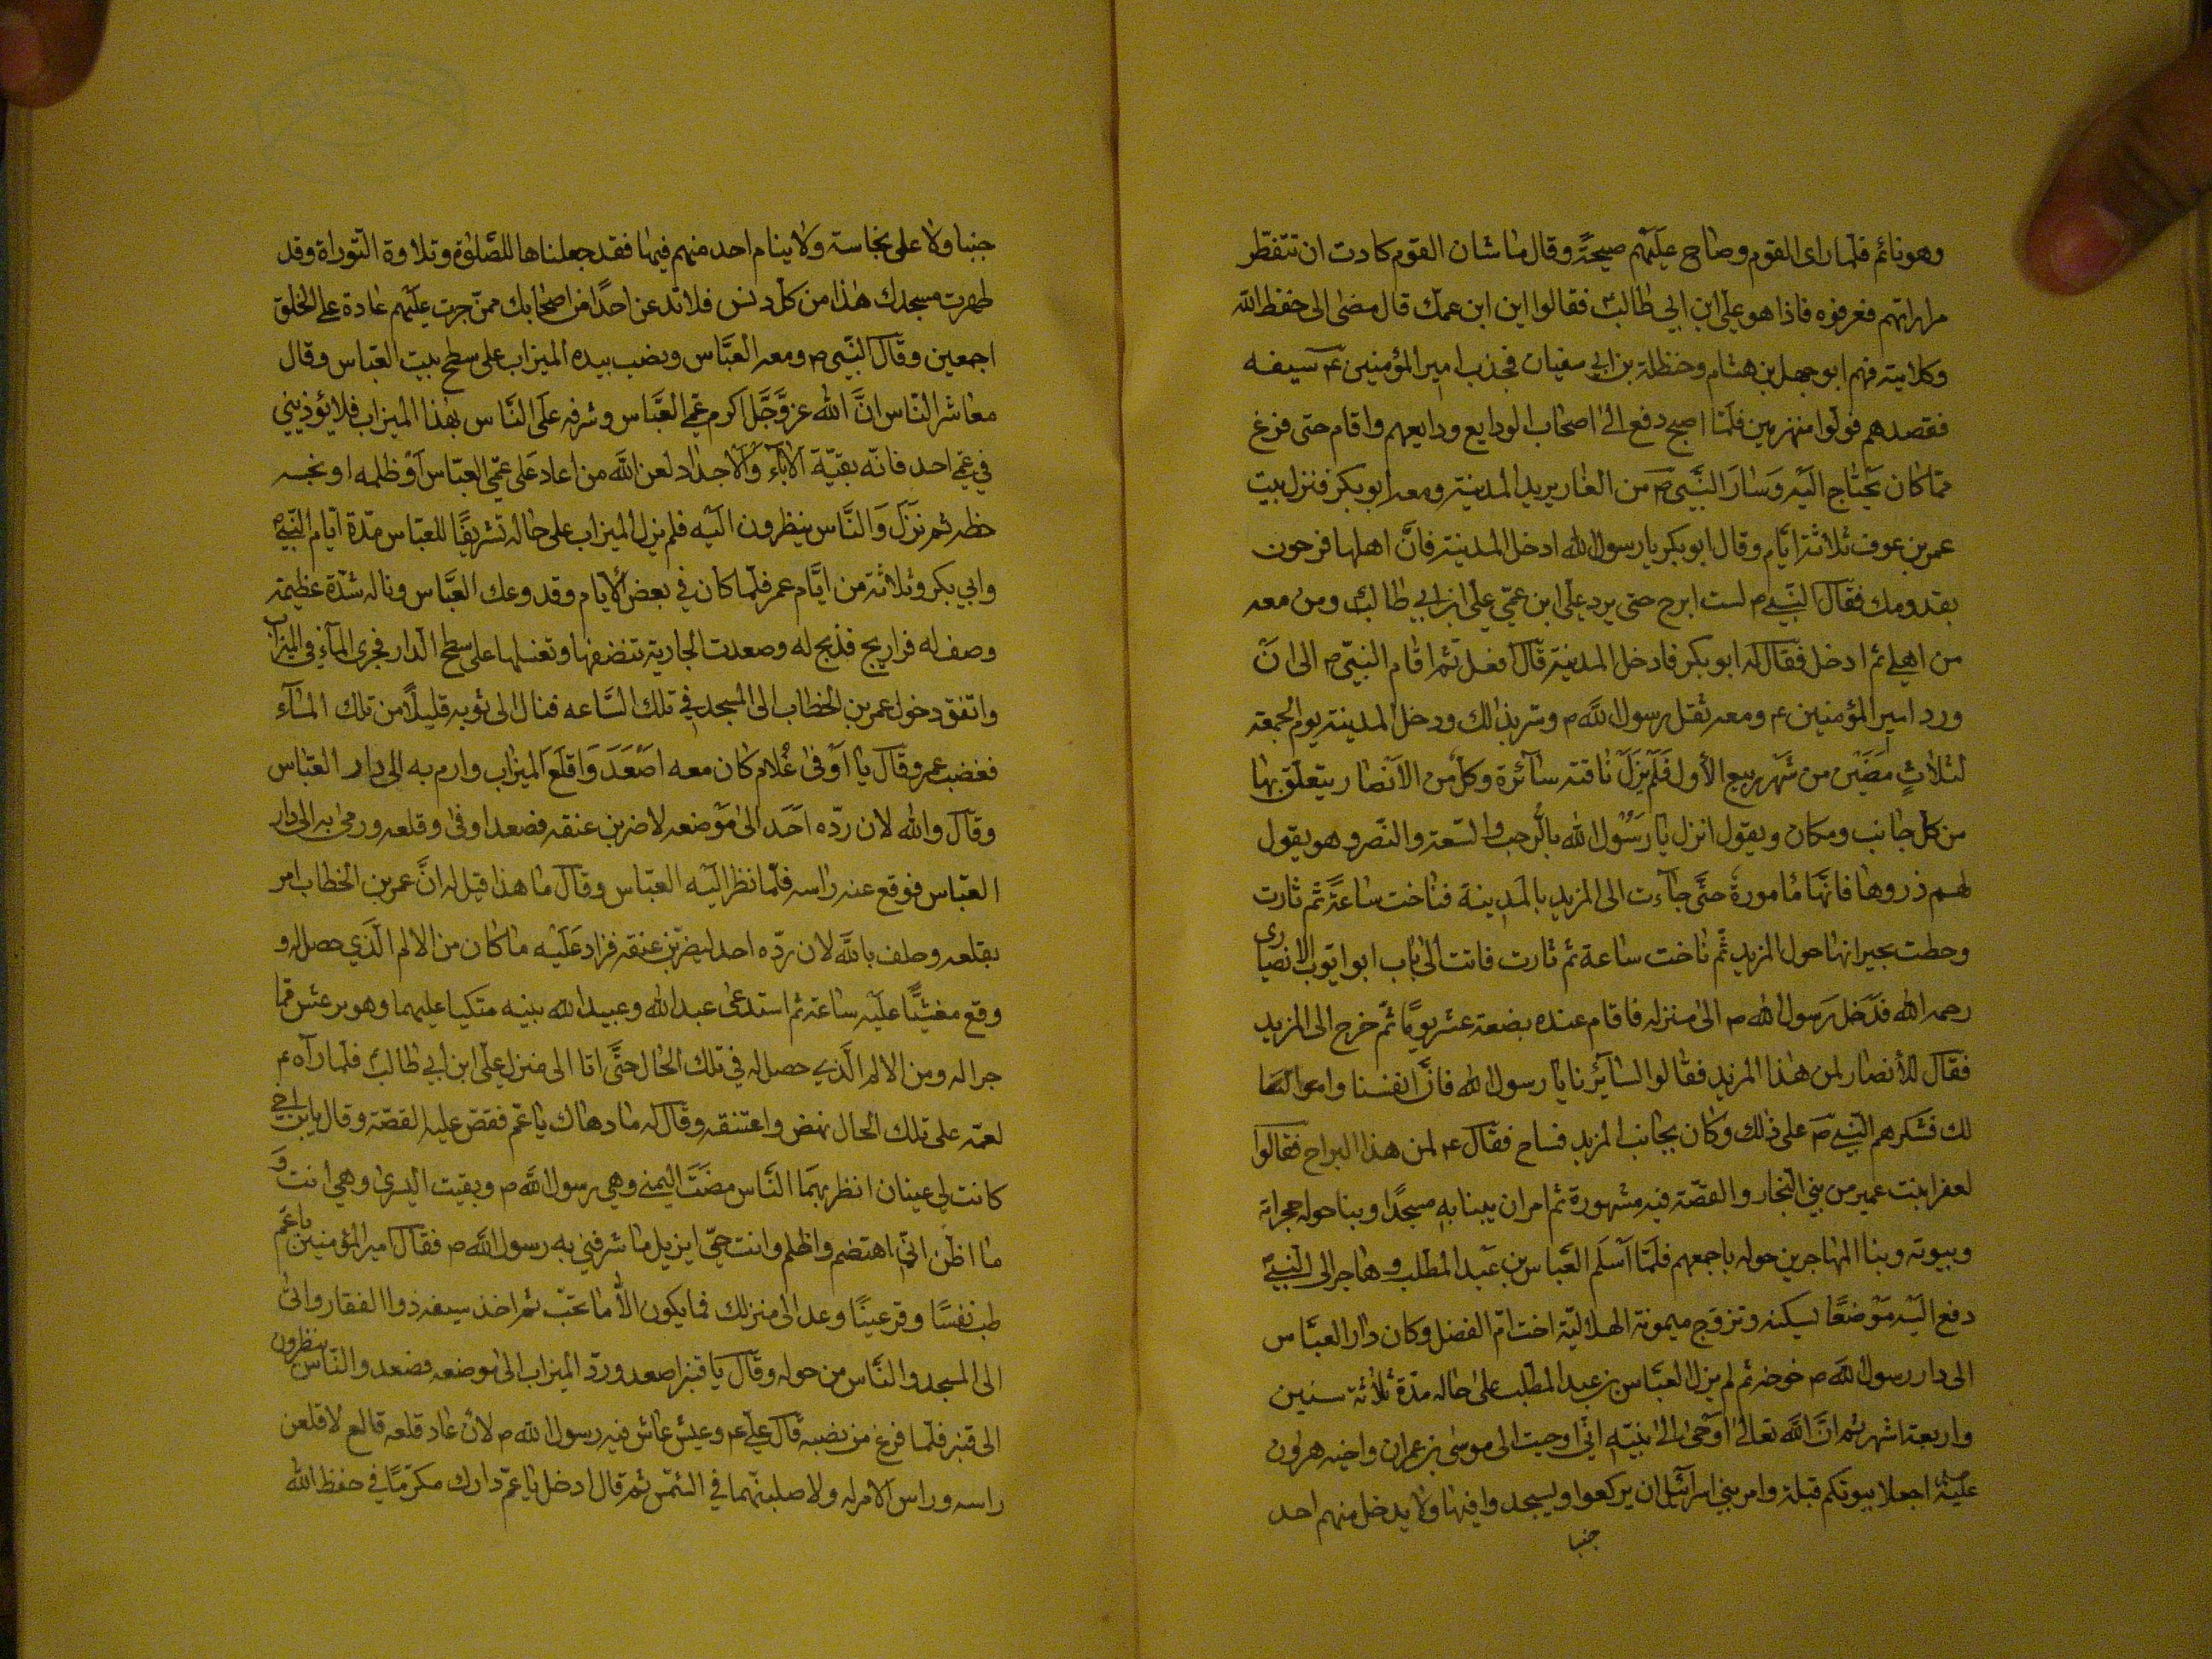 وهو نائم فلما راى القوم وصاح عليهم صيحةً وقال ما شان القوم كادت ان تتفطر
مراراتهم فعرفوه فاذا هو علي ابن ابي طالب فقالوا اين ابن عمك قال مضى الى حفظ الله
وكلايته فهم ابو جهل بن هشام وحنظلة بن ابي سفيان فجذب امير المؤمنين ع سيفه
فقصدهم فولوا منهزمين فلما اصبح دفع الى اصحاب الودايع ودايعهم واقام حتى فرغ
مما كان يحتاج اليه وسار النبي ص من الغار يريد المدينة ومعه ابو بكر فنزل ببيت
عمر بن عوف ثلاثة ايام وقال ابو بكر يا رسول الله ادخل المدينة فان اهلها فرحون
بقدومك فقال النبي ص لست ابرح حتى يرد علي ابن عمي علي ابن ابي طالب ومن معه
من اهلي ثم ادخل فقال له ابو بكر فادخل المدينة قال افعل ثم اقام النبي ص الى ان
ورد امير المؤمنين ع ومعه ثقل رسول الله ص وسر بذالك ودخل المدينة يوم الجمعة
لثلاثٍ مضين من شهر ربيع الأول فلم يزل ناقته سائرة وكل من الانصار يتعلق بها
من كل جانب ومكان ويقول انزل يا رسول الله بالرحب والسعة والنصر وهو يقول
لهم ذروها فانها مامورة حتى جاءت الى المزيد بالمدينة فناخت ساعةً ثم ثارت
وحطت بجيرانها حول المزيد ثم ناخت ساعة ثم ثارت فاتت الى باب ابو ايوب الانصارى
رحمه الله فدخل رسول الله ص الى منزله فاقام عنده بضعة عشر يومًا ثم خرج الى المزيد
فقال للأنصار لمن هذا المزيد فقالوا لسائرنا يا رسول الله فان انفسنا واموالنا
لك فشكرهم النبي ص على ذلك وكان بجانب المزيد فساح فقال ع لمن هذا البراح فقالوا
لعفرا بنت عمير من بني النجار والقصة فيه مشهورة ثم امر ان يبنا به مسجدًا وبنا حوله حجراته
وبيوته وبنا المهاجرين حوله باجمعهم فلما اسلم العباس بن عبد المطلب وهاجر الى النبي ص
دفع اليه موضعًا ليسكنه وتزوج ميمونة الهلالية اخت ام الفضل وكان دار العباس
الى دار رسول الله ص خوخه ثم لم يزل العباس بن عبد المطلب على حاله مدة ثلاثة سنين
واربعة اشهر ثم ان الله تعالى اوحى الى نبيه اني اوحيت الى موسى بن عمران واخيه هرون
عليه اجعلا بيوتكم قبلة وامر بني اسرائيل ان يركعوا ويسجدوا فيها ولا يدخل منهم احد
جنبا
جنبا ولا على نجاسة ولا ينام احد منهم فيها فقد جعلناها للصلوة وتلاوة التوراة وقد
طهرت مسجدك هذا من كل دنس فلا تدعن احدًا من اصحابك ممن جرت عليهم عادة على الخلق
اجمعين وقال النبي ص ومعه العباس ونصب بيده الميزاب على سطح بيت العباس وقال
معاشر الناس ان الله عز وجل اكرم عمي العباس وشرفه على الناس بهذا الميزاب فلا يؤذيني
في عمي احد فانه بقية الاباء والاجداد لعن الله من اعاد على عمي العباس او ظلمه او نجسه
حظه ثم نزل والناس ينظرون اليه فلم يزل الميزاب على حاله تشريفًا للعباس مدة ايام النبي ص
وابي بكر وثلاثة من ايام عمر فلما كان في بعض الأيام وقد وعك العباس وناله شدة عظيمة
وصف له فراريج فذبح له وصعدت الجارية تنضفها وتغسلها على سطح الدار فجرى الماء في الميزاب
واتفق دخول عمر بن الخطاب الى المسجد في تلك الساعه فنال الى ثوبه قليلًا من تلك الماء
فغضب عمر وقال يا اوفى غلام كان معه اصعد واقلع الميزاب وارم به الى دار العباس
وقال والله لان رده احد الى موضعه لاضربن عنقه فصعد اوفى وقلعه ورمى به الى دار
العباس فوقع عند راسه فلما نظر اليه العباس وقال ما هذا قيل له ان عمر بن الخطاب امر
بقلعه وحلف بالله لان رده احد ليضربن عنقه فزاد عليه ما كان من الالم الذي حصل له و
وقع مغشيًا عليه ساعة ثم استدعى عبد الله وعبيد الله بنيه متكيا عليهما وهو يرعش مما
جرا له ومن الالم الذي حصل له في تلك الحال حتى اتا الى منزل علي ابن ابي طالب فلما راه ع
لعمه على تلك الحال نهض واعتنقه وقال له ما دهاك يا عم فقص عليه القصة وقال يابن اخي
كانت لي عينان انظر بهما الناس مضت اليمنى وهي رسول الله ص وبقيت اليسرى وهي انت و
ما اظن اني اهتضم واظلم وانت حي ايزيل ما شرفني به رسول الله ص فقال امير المؤمنين يا عم
طب نفسًا وقر عينًا وعد الى منزلك فما يكون الا ما تحب ثم اخذ سيفه ذوا الفقار واتى
الى المسجد والناس من حوله وقال يا قنبر اصعد ورد الميزاب الى موضعه فصعد والناس ينظرون
الى قنبر فلما فرغ من نصبه قال علي ع وعيش عاش فيه رسول الله ص لان عاد قلعه قالع لاقلعن
راسه وراس الامر له ولاصلبنهما في الشمس ثم قال ادخل يا عم دارك مكرمًا في حفظ الله